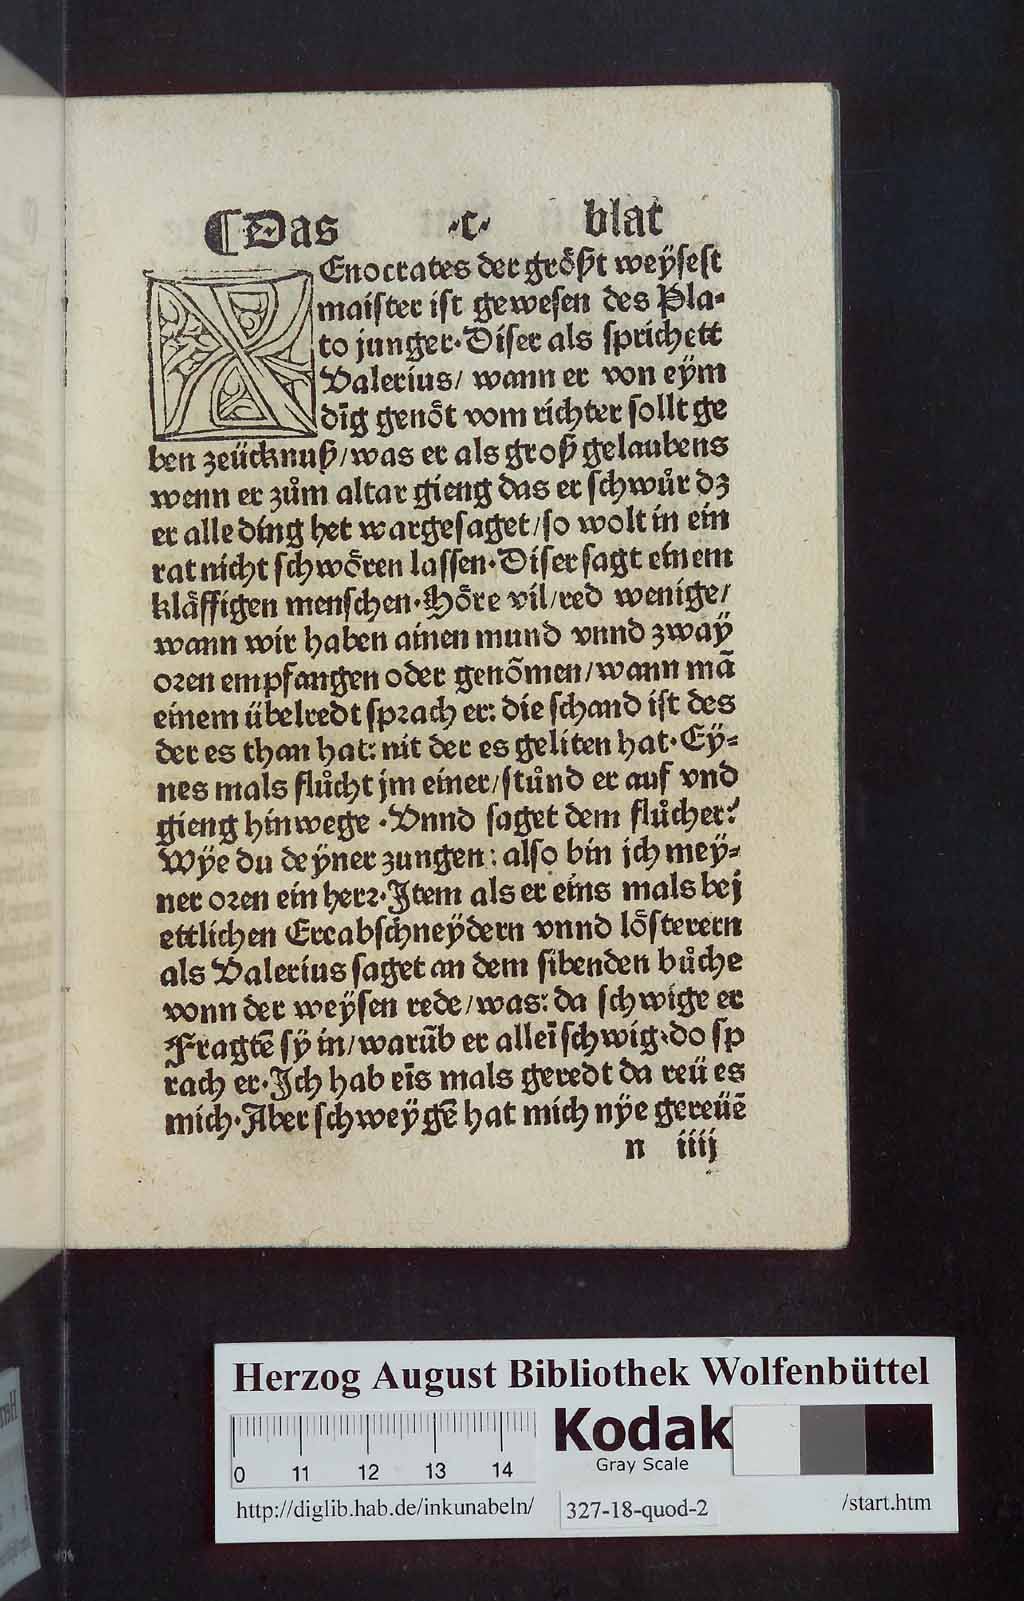 ¶Das ·c· blat
XEnocrates der größt weÿsest
maister ist gewesen des Pla⸗
to junger·Diser als sprichett
Valerius/ wann er von eÿm
dīg genöt vom richter sollt ge
ben zeücknuß/was er als groß gelaubens
wenn er zům altar gieng das er schwůr dz
er alle ding het wargesaget/so wolt in ein
rat nicht schwören lassen·Diser sagt einem
kläffigen menschen·Höre vil/red wenige/
wann wir haben ainen mund vnnd zwaÿ
oꝛen empfangen oder genōmen/wann mā
einem übelredt spꝛach er: die schand ist des
der es than hat: nit der es geliten hat·Eÿ⸗
nes mals flůcht jm einer/stůnd er auf vnd
gieng hinwege ·Vnnd saget dem flůcher:
Wÿe du deÿner zungen: also bin jch meÿ⸗
ner oꝛen ein herꝛ·Item als er eins mals bej
ettlichen Ereabschneÿdern vnnd lösterern
als Valerius saget an dem sibenden bůche
vonn der weÿsen rede/was: da schwige er
Fragtē sÿ in/warūb er alleī schwig·do sp
rach er·Ich hab eīs mals geredt da reü es
mich·Aber schweÿgē hat mich nÿe gereüē
n iiij
Herzog August Bibliothek Wolfenbüttel
0 11 12 13 14
Kodak
Gray Scale
http://diglib.hab.de/inkunabeln/ 327-18-quod-2 /start.htm